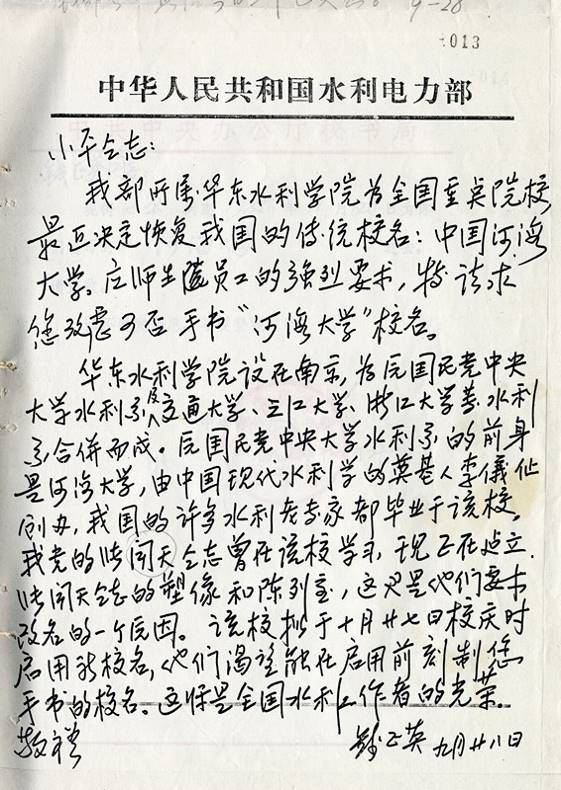 9-28
013
中华人民共和国水利电力部
小平同志：
我部所属华东水利学院为全国重点院校，
最近决定恢复我国的传统校名：中国河海
大学。应师生员工的强烈要求，特请求
您考虑可否手书“河海大学”校名。
华东水利学院设在南京，为原国民党中央
大学水利系及交通大学、三江大学、浙江大学等水利
系合併而成。原国民党中央大学水利系的前身
是河海大学，由中国现代水利学的奠基人李儀仙
创办，我国的许多水利老专家都毕业于该校。
我党的张闻天同志曾在该校学习，现正在建立
张闻天同志的塑像和陈列室，这也是他们要求
改名的一个原因。该校拟于十月廿七日校庆时
启用新校名，他们渴望能在启用前刻制您
手书的校名。这将是全国水利工作者的光荣。
敬礼
钱正英 九月廿八日